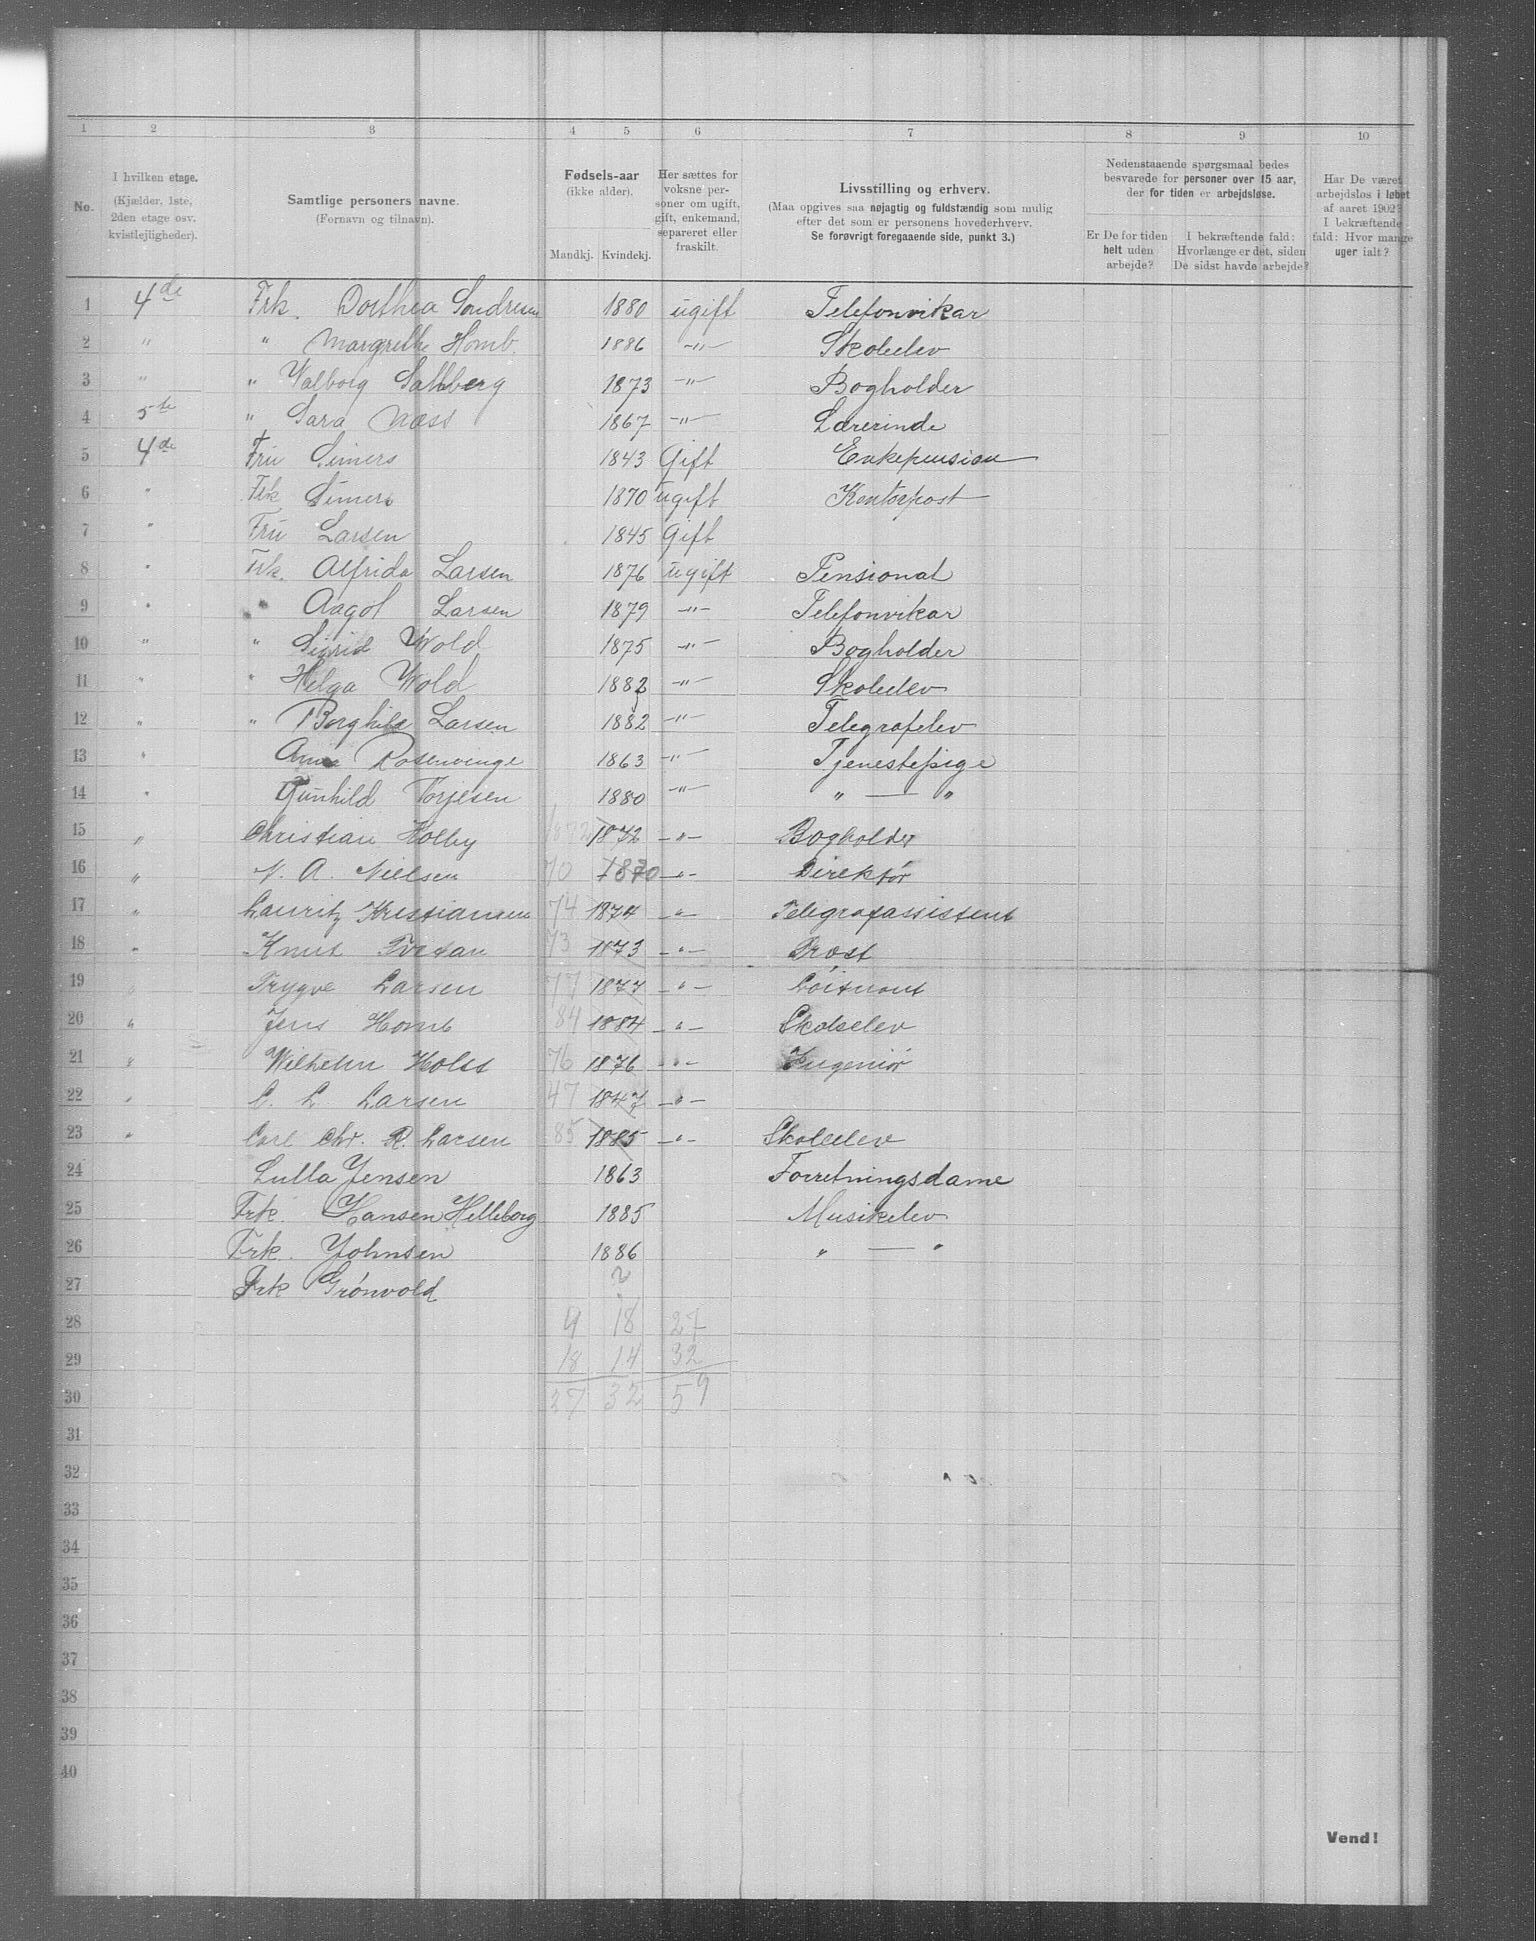 1 2 3 4 5 6 7 8 9 10
No.
I hvilken etage.
(Kjælder, 1ste,
2den etage osv.
kvistlejligheder).
Samtlige personers navne.
(Fornavn og tilnavn).
Fødsels-aar
(ikke alder).
Mandkj. Kvindekj.
Her sættes for
voksne per-
soner om ugift,
gift, enkemand,
separeret eller
fraskilt.
Livsstilling og erhverv.
(Maa opgives saa nøjagtig og fuldstændig som mulig
efter det som er personens hovederhverv.
Se forøvrigt foregaaende side, punkt 3.)
Nedenstaaende spørgsmaal bedes
besvarede for personer over 15 aar,
der for tiden er arbejdsløse.
Er De for tiden
helt uden
arbejde?
I bekræftende fald:
Hvorlænge er det, siden
De sidst havde arbejde?
Har De været
arbejdsløs i løbet
af aaret 1902?
I bekræftende
fald: Hvor mange
uger ialt?
1 4de Frk. Dorthea Sondresen 1880 ugift Telefonvikar
2 " " Margrethe Homb. 1886 -"- Skoleelev
3 " " Valborg Sahlberg 1873 -"- Bogholder
4 5te " Sara Næss 1867 -"- Lærerinde
5 4de Fru Simers 1843 Gift Enkepension
6 " Frk Simers 1870 ugift Kontorpost
7 " Fru Larsen 1845 Gift
8 " Frk. Alfrida Larsen 1876 ugift Pensionat
9 " " Aagot Larsen 1879 -"- Telefonvikar
10 " " Sigrid Wold 1875 -"- Bogholder
11 " " Helga Wold 1882 -"- Skoleelev
12 " " Borghild Larsen 1882 -"- Telegrafelev
13 " Anna Rosenvinge 1863 -"- Tjenestepige
14 " Gunhild Torjesen 1880 -"- " — "
15 " Christian Holby 1872 1872 -"- Bogholder
16 " N. A. Nielsen 70 1870 -"- Direktør
17 " Lauritz Kristiansen 74 1874 -"- Telegrafassistent
18 " Knut 73 1873 -"- Prost
19 " Trygve Larsen 77 1877 -"- Løitnant
20 " Jens Homb 84 1884 -"- Skoleelev
21 " Wilhelm Holst 76 1876 -"- Ingeniør
22 " C. L. Larsen 47 1847 -"-
23 " Carl Chr. R. Larsen 85 1885 -"- Skoleelev
24 Lulla Jensen 1863 Forretningsdame
25 Frk. Hansen Helleborg 1885 Musikelev
26 Frk. Johnsen 1886 " — "
27 Frk Grønvold ?
28 9 18 27
29 18 14 32
30 27 32 59
31
32
33
34
35
36
37
38
39
40
Vend!